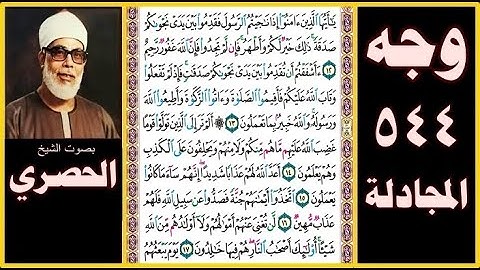 وجه
٥٤٤
المجادلة
يَٰٓأَيُّهَا ٱلَّذِينَ ءَامَنُوٓا۟ إِذَا نَٰجَيْتُمُ ٱلرَّسُولَ فَقَدِّمُوا۟ بَيْنَ يَدَىْ نَجْوَىٰكُمْ
صَدَقَةً ۚ ذَٰلِكَ خَيْرٌ لَّكُمْ وَأَطْهَرُ ۚ فَإِن لَّمْ تَجِدُوا۟ فَإِنَّ ٱللَّهَ غَفُورٌ رَّحِيمٌ
١٢ ءَأَشْفَقْتُمْ أَن تُقَدِّمُوا۟ بَيْنَ يَدَىْ نَجْوَىٰكُمْ صَدَقَٰتٍ ۚ فَإِذْ لَمْ تَفْعَلُوا۟
وَتَابَ ٱللَّهُ عَلَيْكُمْ فَأَقِيمُوا۟ ٱلصَّلَوٰةَ وَءَاتُوا۟ ٱلزَّكَوٰةَ وَأَطِيعُوا۟ ٱللَّهَ
وَرَسُولَهُۥ ۚ وَٱللَّهُ خَبِيرٌۢ بِمَا تَعْمَلُونَ ١٣ ۞ أَلَمْ تَرَ إِلَى ٱلَّذِينَ تَوَلَّوْا۟ قَوْمًا
غَضِبَ ٱللَّهُ عَلَيْهِم مَّا هُم مِّنكُمْ وَلَا مِنْهُمْ وَيَحْلِفُونَ عَلَى ٱلْكَذِبِ
وَهُمْ يَعْلَمُونَ ١٤ أَعَدَّ ٱللَّهُ لَهُمْ عَذَابًا شَدِيدًا ۖ إِنَّهُمْ سَآءَ مَا كَانُوا۟
يَعْمَلُونَ ١٥ ٱتَّخَذُوٓا۟ أَيْمَٰنَهُمْ جُنَّةً فَصَدُّوا۟ عَن سَبِيلِ ٱللَّهِ فَلَهُمْ
عَذَابٌ مُّهِينٌ ١٦ لَّن تُغْنِىَ عَنْهُمْ أَمْوَٰلُهُمْ وَلَآ أَوْلَٰدُهُم مِّنَ ٱللَّهِ
شَيْـًٔا ۚ أُو۟لَٰٓئِكَ أَصْحَٰبُ ٱلنَّارِ ۖ هُمْ فِيهَا خَٰلِدُونَ ١٧ يَوْمَ يَبْعَثُهُمُ
بصوت الشيخ
الحصري